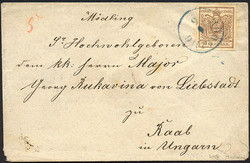 5
Mödling
Sr Hochwohlgeboren
dem kk. Herrn Major
Georg Rukavina von Liebstadt
zu
Raab
in Ungarn